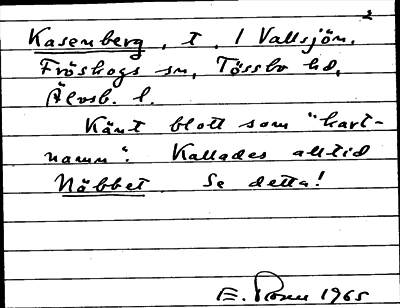 2
Kasenberg, t, i Vallsjön.
Fröskogs sn, Tössbo hd,
Älvsb. l.
Känt blott som "kart-
namn". Kallades alltid
Näbbet. Se detta!
E. 1965